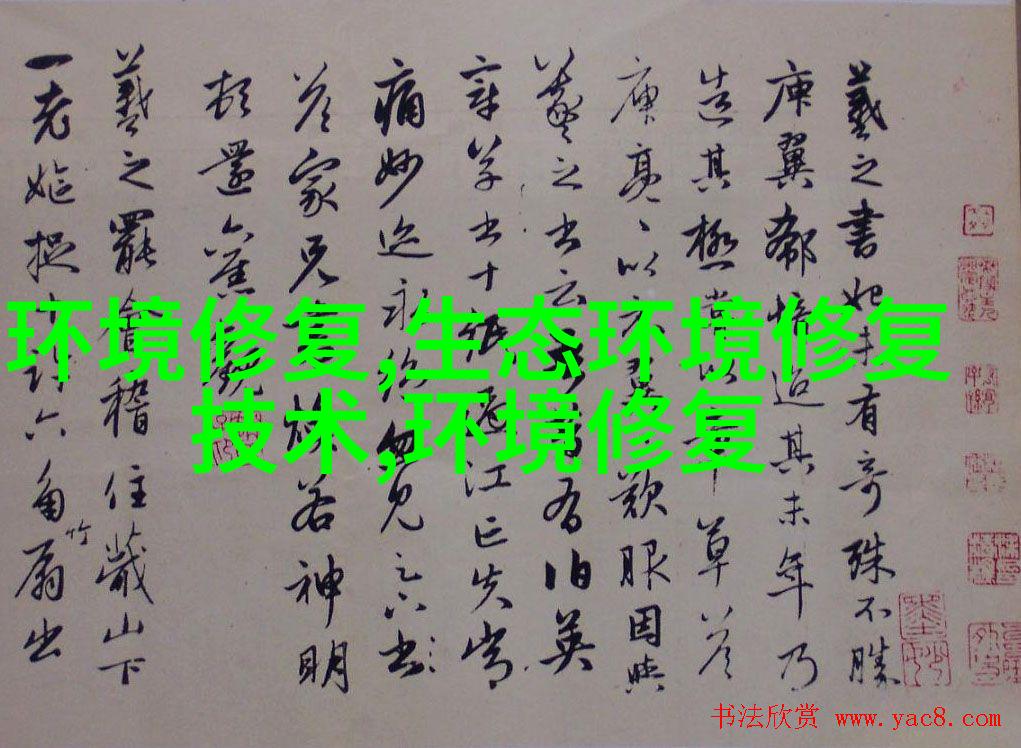 羲之書初未有奇殊不勝
庾翼郗愔迨其末年乃
造其極嘗以章草答
庾亮亮以示翼歎服因與
羲之書云吾昔有伯英
章草書十紙過江亡失常
痛妙迹永絕忽見足下書
答家兄書煥若神明
頓還舊觀
羲之罷會稽住蕺山下
一老嫗捉十許六角竹扇出
环境修复,生态环境修复
技术,环境修复
书法欣赏 www.yac8.com